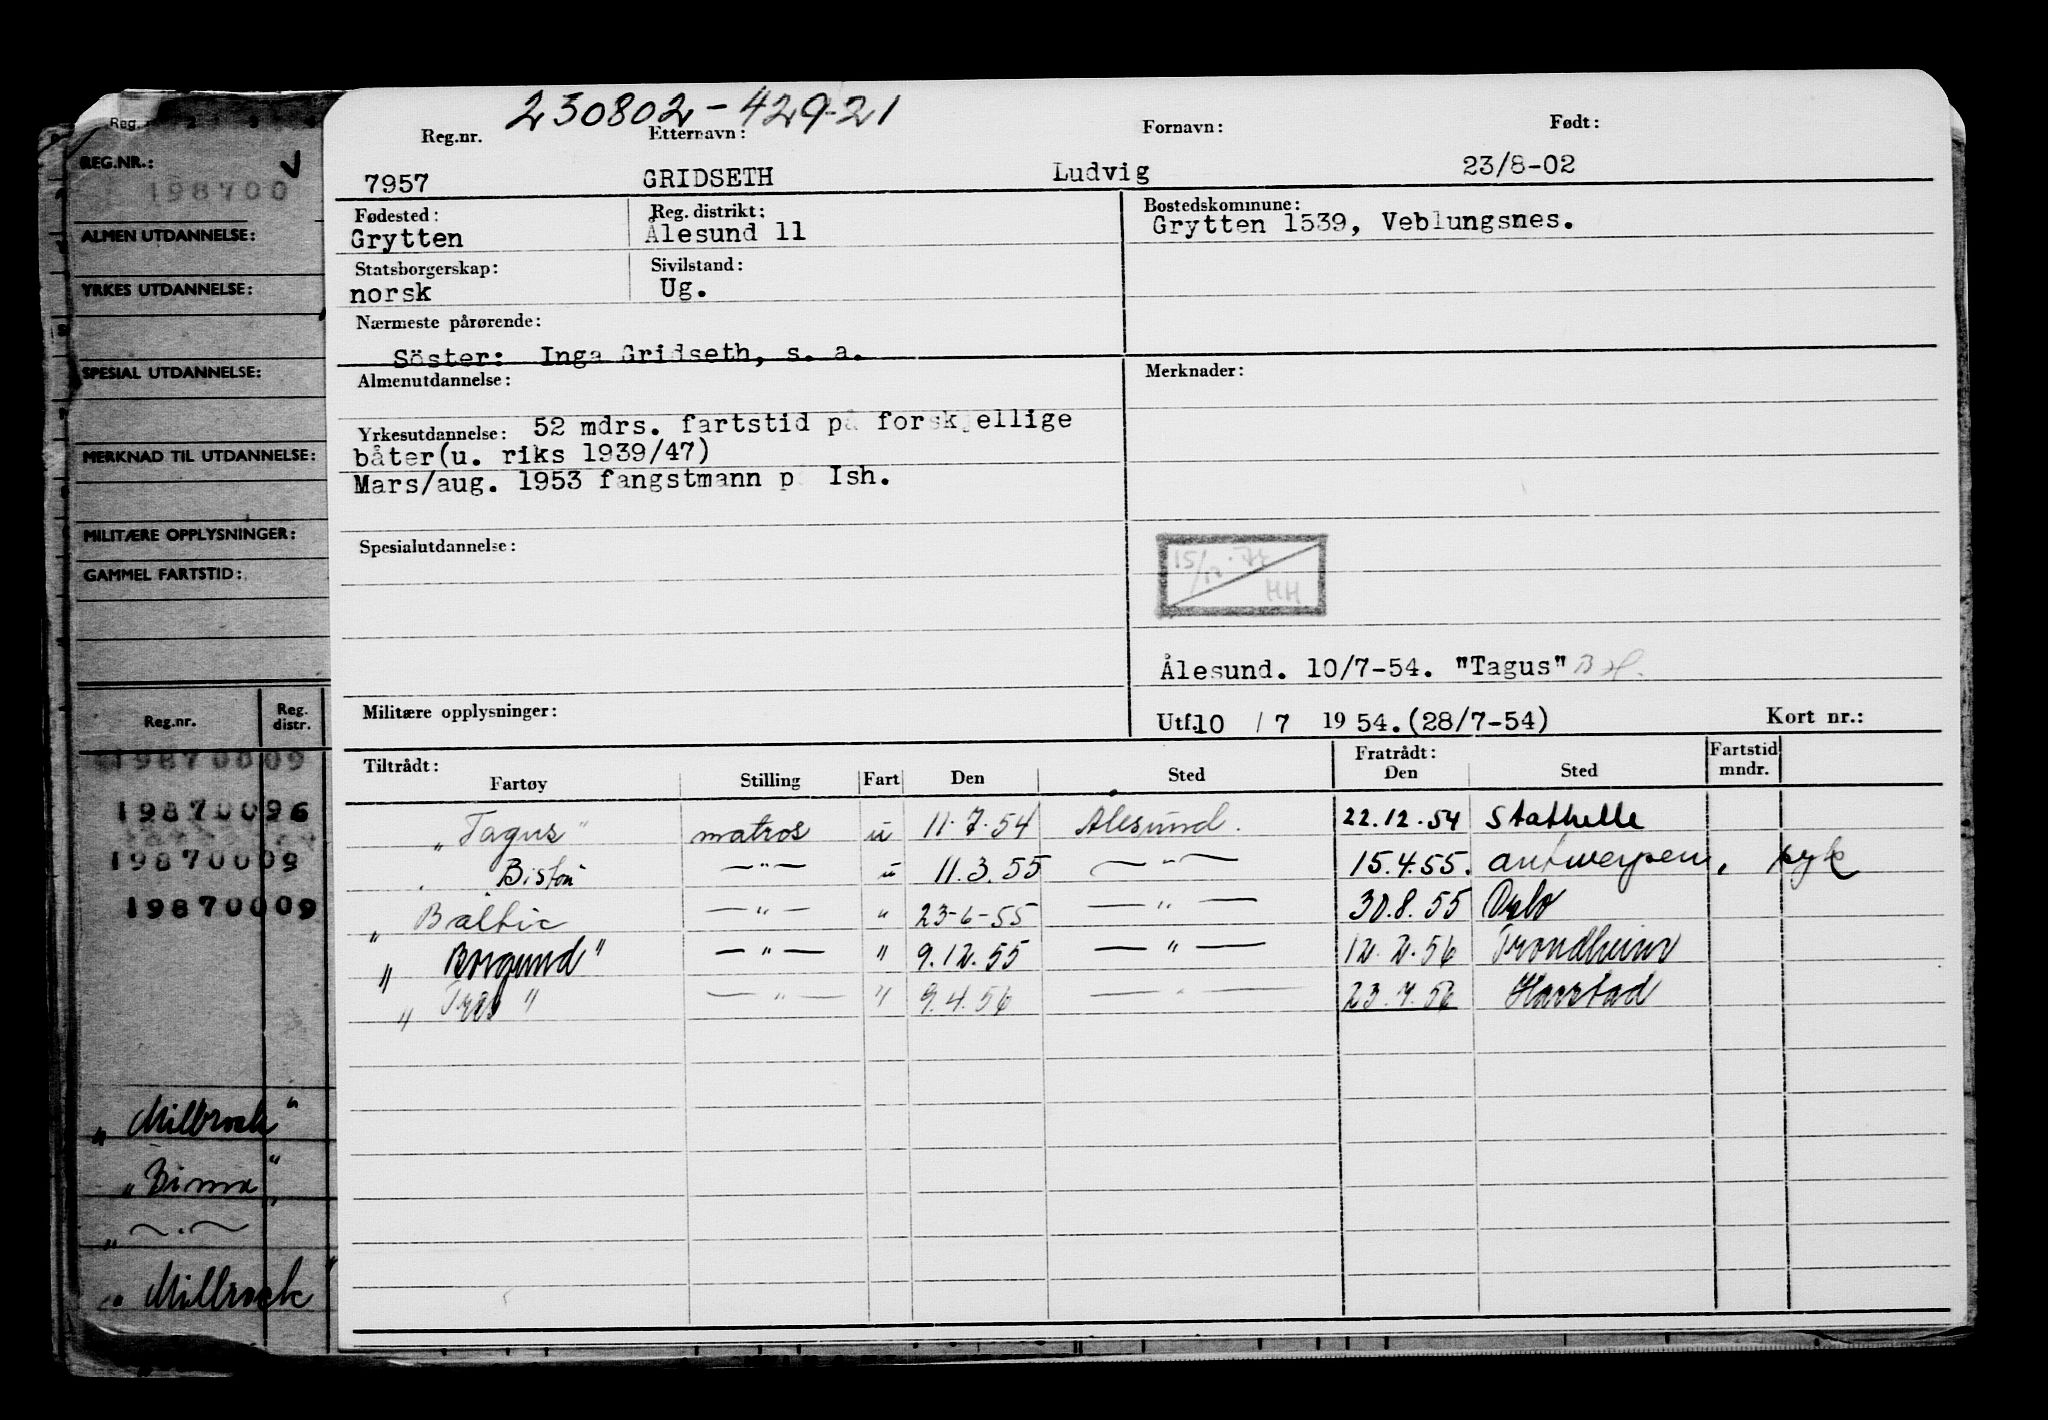 230802-42921
Reg.nr. Etternavn: Fornavn: Født:
7957 GRIDSETH Ludvig 23/8-02
Fødested: Reg. distrikt: Bostedskommune:
Grytten Ålesund 11 Grytten 1539, Veblungsnes.
Statsborgerskap: Sivilstand:
norsk Ug.
Nærmeste pårørende:
Söster: Inga Gridseth, s. a.
Almenutdannelse: Merknader:
Yrkesutdannelse: 52 mdrs. fartstid på forskjellige
båter(u. riks 1939/47)
Mars/aug. 1953 fangstmann p Ish.
Spesialutdannelse:
15/12.74
HH
Ålesund. 10/7-54. "Tagus"
Militære opplysninger: Utf.10 / 7 1954.(28/7-54) Kort nr.:
Tiltrådt: Fratrådt: Fartstid
Fartøy Stilling Fart Den Sted Den Sted mndr.
"Tagus" matros u 11.7.54 Alesund. 22.12.54 Stathelle
— " — u 11.3.55 — " — 15.4.55. antwerpen, syk
" Baltic — " — " 23-6-55 — " — 30.8.55 Oslo
" Borgund" — " — " 9.12.55 — " — 12.2.56 Trondheim
" — " — " 9.4.56 — " — 23.4.56 Harstad
Reg.
REG.NR.:
198700
ALMEN UTDANNELSE:
YRKES UTDANNELSE:
SPESIAL UTDANNELSE:
MERKNAD TIL UTDANNELSE:
MILITÆRE OPPLYSNINGER:
GAMMEL FARTSTID:
Reg.nr. Reg. distr.
19870009
19870096
19870009
19870009
"Milbrock"
"Bima"
" — " —
"Milbrock"